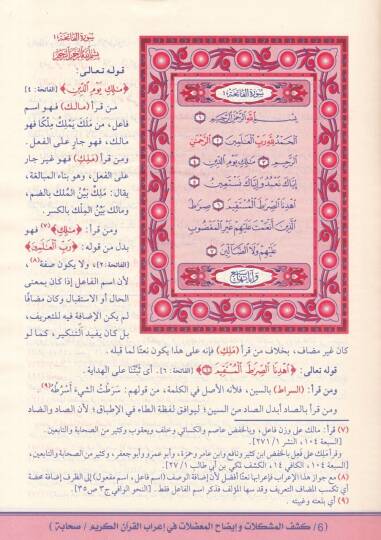 سُورَةُ الفَاتِحَةِ
بِسْمِ اللَّهِ الرَّحْمَنِ الرَّحِيمِ
قوله تعالى:
﴿مَٰلِكِ يَوْمِ الدِّينِ﴾ (الفاتحة: ٤)
من قرأ (مالك) فهو اسم
فاعل، من مَلَكَ يَمْلِكُ مِلْكًا فهو
مالك، فهو جارٍ على الفعل.
ومن قرأ (مَلِكِ) فهو غير جار
على الفعل، وهو بناء المبالغة،
يقال: مَلِكٌ بَيِّنُ المُلك بالضم،
ومالك بَيِّنُ المِلْكِ بالكسر.
ومن قرأ: ﴿مَٰلِكِ﴾(٧) فهو
بدل من قوله: ﴿رَبِّ الْعَٰلَمِينَ﴾
(الفاتحة: ٢)، ولا يكون صفة(٨)،
لأن اسم الفاعل إذا كان بمعنى
الحال أو الاستقبال وكان مضافًا
لم يكن الإضافة فيه للتعريف،
بل كان يفيد التنكير، كما لو
سُورَةُ الفَاتِحَةِ
بِسْمِ اللَّهِ الرَّحْمَٰنِ الرَّحِيمِ ١
الْحَمْدُ لِلَّهِ رَبِّ الْعَٰلَمِينَ ٢ الرَّحْمَٰنِ
الرَّحِيمِ ٣ مَٰلِكِ يَوْمِ الدِّينِ ٤
إِيَّاكَ نَعْبُدُ وَإِيَّاكَ نَسْتَعِينُ ٥
اهْدِنَا الصِّرَٰطَ الْمُسْتَقِيمَ ٦ صِرَٰطَ
الَّذِينَ أَنْعَمْتَ عَلَيْهِمْ غَيْرِ الْمَغْضُوبِ
عَلَيْهِمْ وَلَا الضَّالِّينَ ٧
كان غير مضاف، بخلاف من قرأ (مَلِكِ) فإنه على هذا يكون نعتًا لما قبله.
قوله تعالى: ﴿اهْدِنَا الصِّرَٰطَ الْمُسْتَقِيمَ﴾ (الفاتحة: ٦). أي ثَبِّتْنَا على الهداية.
ومن قرأ: (السراط) بالسين، فلأنه الأصل في الكلمة، من قولهم: سَرَطْتُ الشيءَ أَسْرُطُهُ(٩)
ومن قرأ بالصاد أبدل الصاد من السين؛ ليوافق لفظة الطاء في الإطباق؛ لأن الصاد والضاد
(٧) قرأ: مالك على وزن فاعل، وبالخفض عاصم والكسائي وخلف ويعقوب وكثير من الصحابة والتابعين.
[السبعة ١٠٤، النشر ١/ ٢٧١].
وقرأ ملِك على فَعِل بالخفض ابن كثير ونافع وابن عامر وحمزة، وأبو عمرو وأبو جعفر، وكثير من الصحابة والتابعين،
[السبعة ١٠٤، الكافي ١٤، الكشف لمكي بن أبي طالب ١/ ٢٧]
(٨) مع جواز هذا الإعراب فإعرابها نعتًا أفضل لأن إضافة الوصف (اسم فاعل، اسم مفعول) إلى الظرف إضافة محضة
أي تكسب المضاف التعريف وقد سها المؤلف فذكر اسم الفاعل فقط. [النحو الوافي ج٣ ص٣٥].
(٩) أي بلعته وغيبته.
(6/ كشف المشكلات وإيضاح المعضلات في إعراب القرآن الكريم / صحابة)